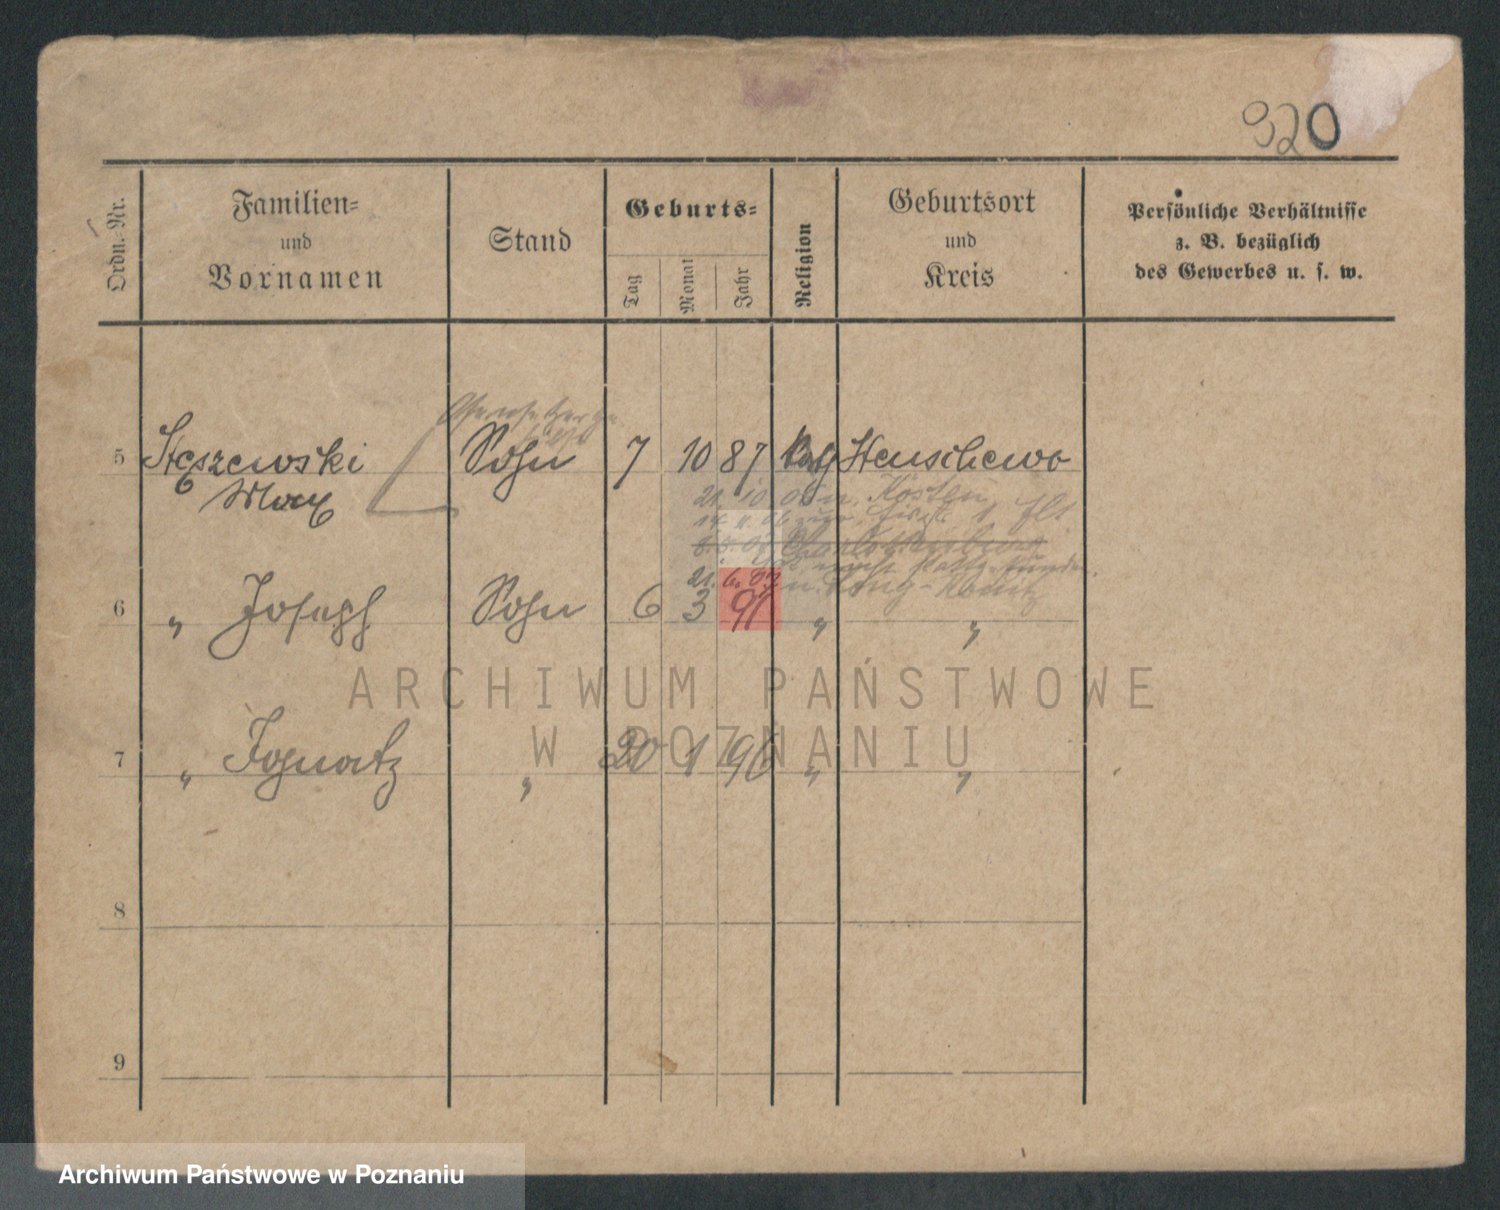 320
Ordn. Nr.
Familien-
und
Vornamen
Stand
Geburts-
Tag
Monat
Jahr
Religion
Geburtsort
und
Kreis
Persönliche Verhältnisse
z. B. bezüglich
des Gewerbes u. s. w.
5 Stęszewski Sohn 7 10 87 Kath Stenschewo
Max
21. 10. 06 n. Kosten
21. 6. 07 n.
6 " Joseph Sohn 6 3 91 " "
ARCHIWUM PAŃSTWOWE
W POZNANIU
7 " Ignatz " 20 1 96 " "
8
9
Archiwum Państwowe w Poznaniu